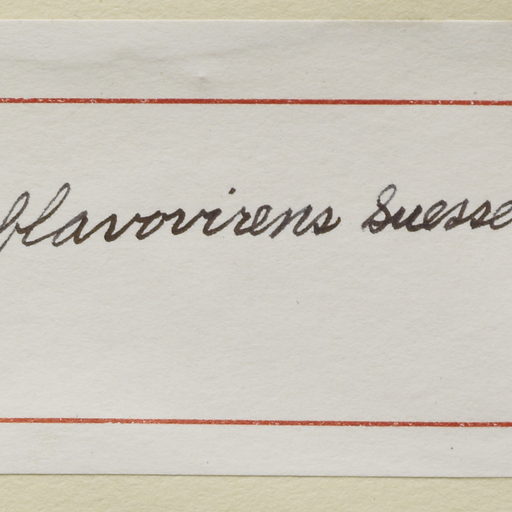 flavovirens Suesse